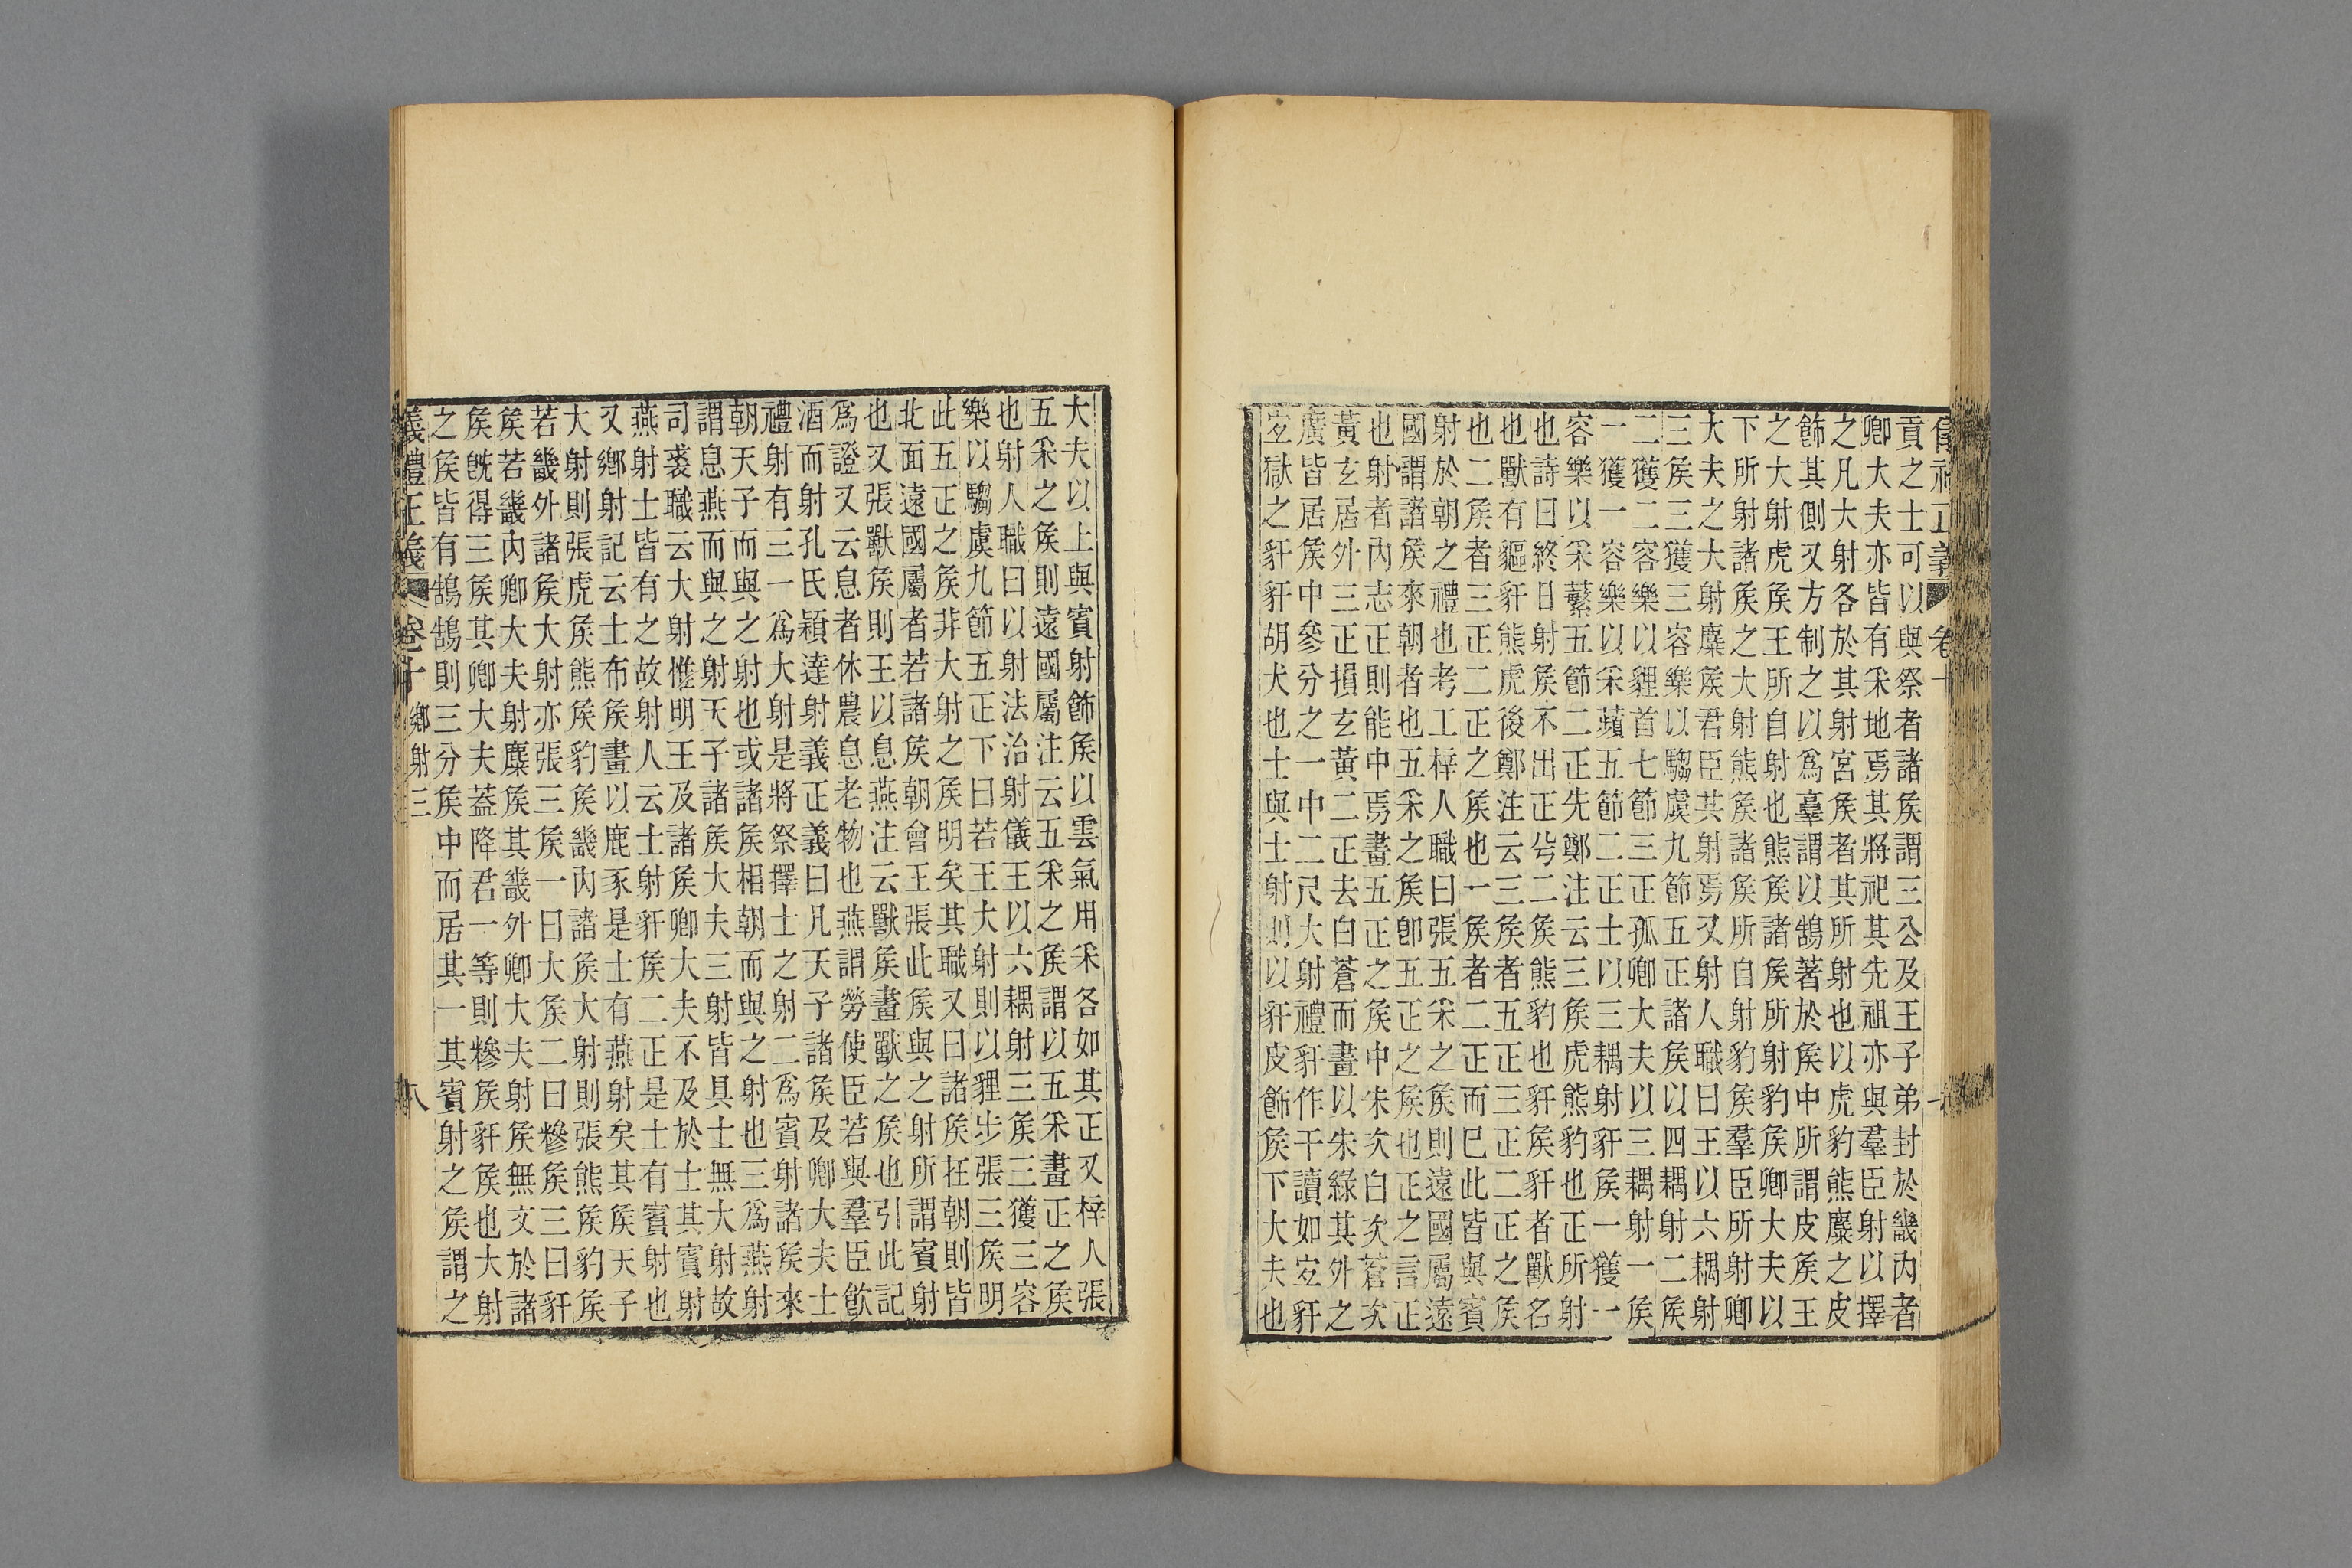 正義 卷十
貢之士可以與祭者諸矦謂三公及王子弟封於畿內者
卿大夫亦皆有采地焉其將祀其先祖亦與羣臣射以擇
之凡大射各於其射宮矦者其所射也以虎豹熊麋之皮
飾其側又方制之以爲𦎧謂以鵠著於矦中所謂皮矦王
之大射虎矦王所自射也熊矦諸矦所射豹矦卿大夫以
下所射諸矦之大射熊矦諸矦所自射豹矦羣臣所射卿
大夫之大射麋矦君臣共射焉又射人職曰王以六耦射
三矦三獲三容樂以騶虞九節五正諸矦以四耦射二矦
二獲二容樂以貍首七節三正孤卿大夫以三耦射一矦
一獲一容樂以采蘋五節二正士以三耦射豻矦一獲一
容樂以采蘩五節二正先鄭注云三矦虎熊豹也正所射
也詩曰終日射矦不出正兮二矦熊豹也豻矦豻者獸名
也獸有貙豻熊虎後鄭注云三矦者五正三正二正之矦
也二矦者三正二正之矦也一矦者二正而巳此皆與賓
射於朝之禮也考工梓人職曰張五采之矦則遠國屬遠
國謂諸矦來朝者也五采之矦卽五正之矦也正之言正
也射者內志正則能中焉畫五正之矦中朱次白次蒼次
黃玄居外三正損玄黃二正去白蒼而畫以朱綠其外之
廣皆居矦中參分之一中二尺大射禮豻作干讀如宐豻
宐獄之豻豻胡犬也士與士射則以豻皮飾矦下大夫也
大夫以上與賓射飾矦以雲氣用采各如其正又梓人張
五采之矦則遠國屬注云五采之矦謂以五采畫正之矦
也射人職曰以射法治射儀王以六耦射三矦三獲三容
樂以騶虞九節五正下曰若王大射則以貍步張三矦明
此五正之矦非大射之矦明矣其職又曰諸矦在朝則皆
北面遠國屬者若諸矦朝會王張此矦與之射所謂賓射
也又張獸矦則王以息燕注云獸矦畫獸之矦也引此記
爲證又云息者休農息老物也燕謂勞使臣若與羣臣飮
酒而射孔氏穎達射義正義曰凡天子諸矦及卿大夫士
禮射有三一爲大射是將祭擇士之射二爲賓射諸矦來
朝天子而與之射也或諸矦相朝而與之射也三爲燕射
謂息燕而與之射天子諸矦大夫三射皆具士無大射故
司裘職云大射惟明王及諸矦卿大夫不及於士其賓射
燕射士皆有之故射人云士射豻矦二正是士有賓射也
又鄉射記云士布矦畫以鹿豕是士有燕射矣其矦天子
大射則張虎矦熊矦豹矦畿內諸矦大射則張熊矦豹矦
若畿外諸矦大射亦張三矦一曰大矦二曰糝矦三曰豻
矦若畿內卿大夫射麋矦其畿外卿大夫射矦無文於諸
矦旣得三矦其卿大夫蓋降君一等則糝矦豻矦也大射
之矦皆有鵠鵠則三分矦中而居其一其賓射之矦謂之
儀禮正義 卷十 鄉射三 八